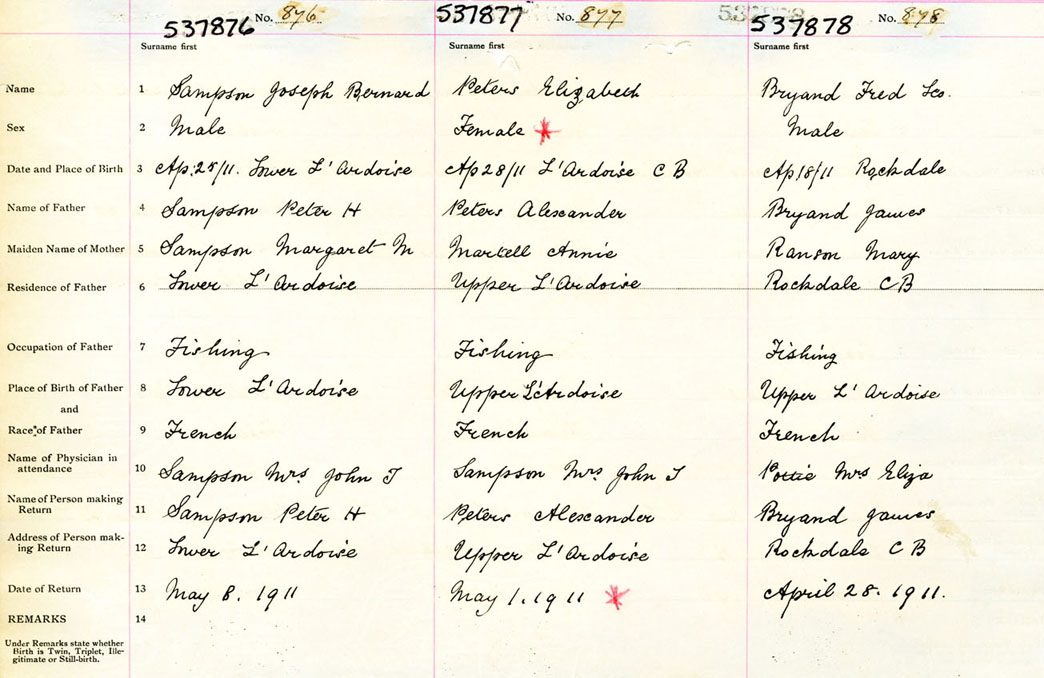 537876 No. 876 537877 No. 877 537878 No. 878
Surname first Surname first Surname first
Name 1 Sampson Joseph Bernard Peters Elizabeth Bryand Fred Leo.
Sex 2 Male Female * Male
Date and Place of Birth 3 Ap. 25/11. Lower L'Ardoise Ap 28/11 L'Ardoise C B Ap 18/11 Rockdale
Name of Father 4 Sampson Peter H Peters Alexander Bryand James
Maiden Name of Mother 5 Sampson Margaret M Martell Annie Ranson Mary
Residence of Father 6 Lower L'Ardoise Upper L'Ardoise Rockdale C B
Occupation of Father 7 Fishing Fishing Fishing
Place of Birth of Father 8 Lower L'Ardoise Upper L'Ardoise Upper L'Ardoise
and
Race of Father 9 French French French
Name of Physician in
attendance 10 Sampson Mrs John T Sampson Mrs John T Pottie Mrs Eliza
Name of Person making
Return 11 Sampson Peter H Peters Alexander Bryand James
Address of Person mak-
ing Return 12 Lower L'Ardoise Upper L'Ardoise Rockdale C B
Date of Return 13 May 8. 1911 May 1. 1911 * April 28. 1911.
REMARKS 14
Under Remarks state whether
Birth is Twin, Triplet, Ille-
gitimate or Still-birth.